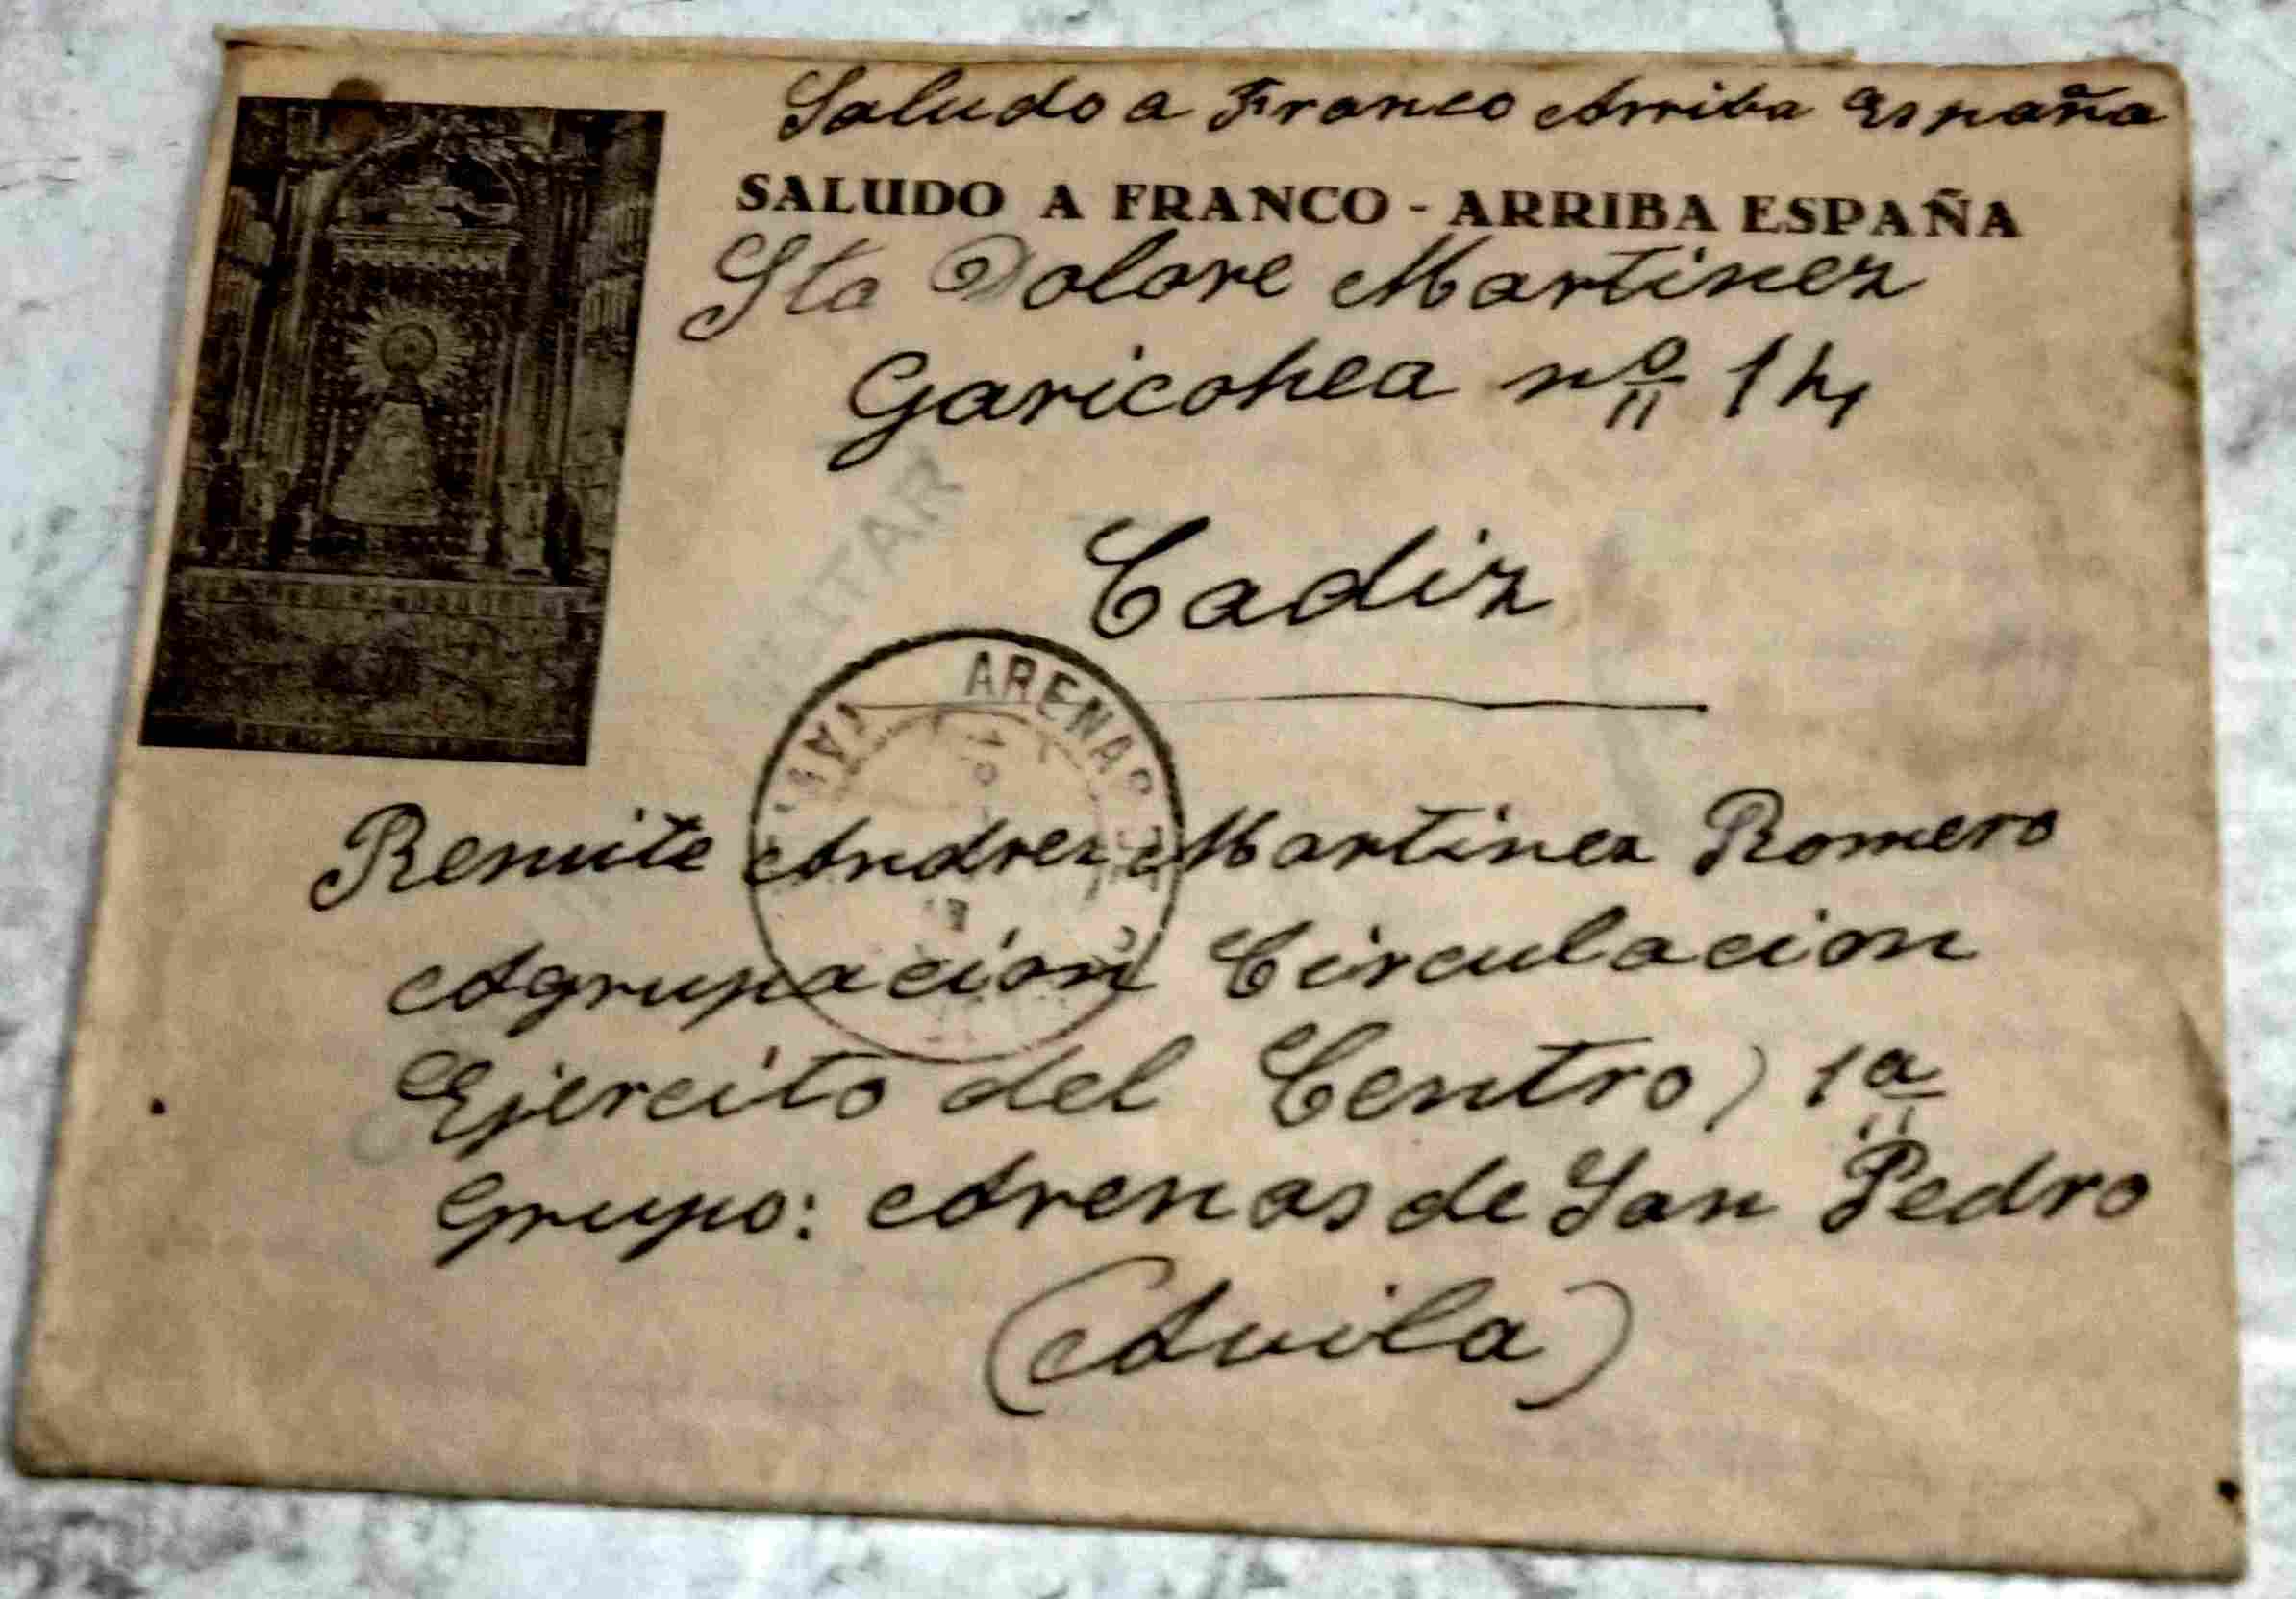 Saludo a Franco Arriba España
SALUDO A FRANCO - ARRIBA ESPAÑA
Sta Dolore Martinez
Garicohea nº 14
Cadiz
MILITAR
ARENAS DE
Remite Andrez Martinez Romero
Agrupación Circulacion
Ejercito del Centro) 1ª
Grupo: Arenas de San Pedro
(Avila)